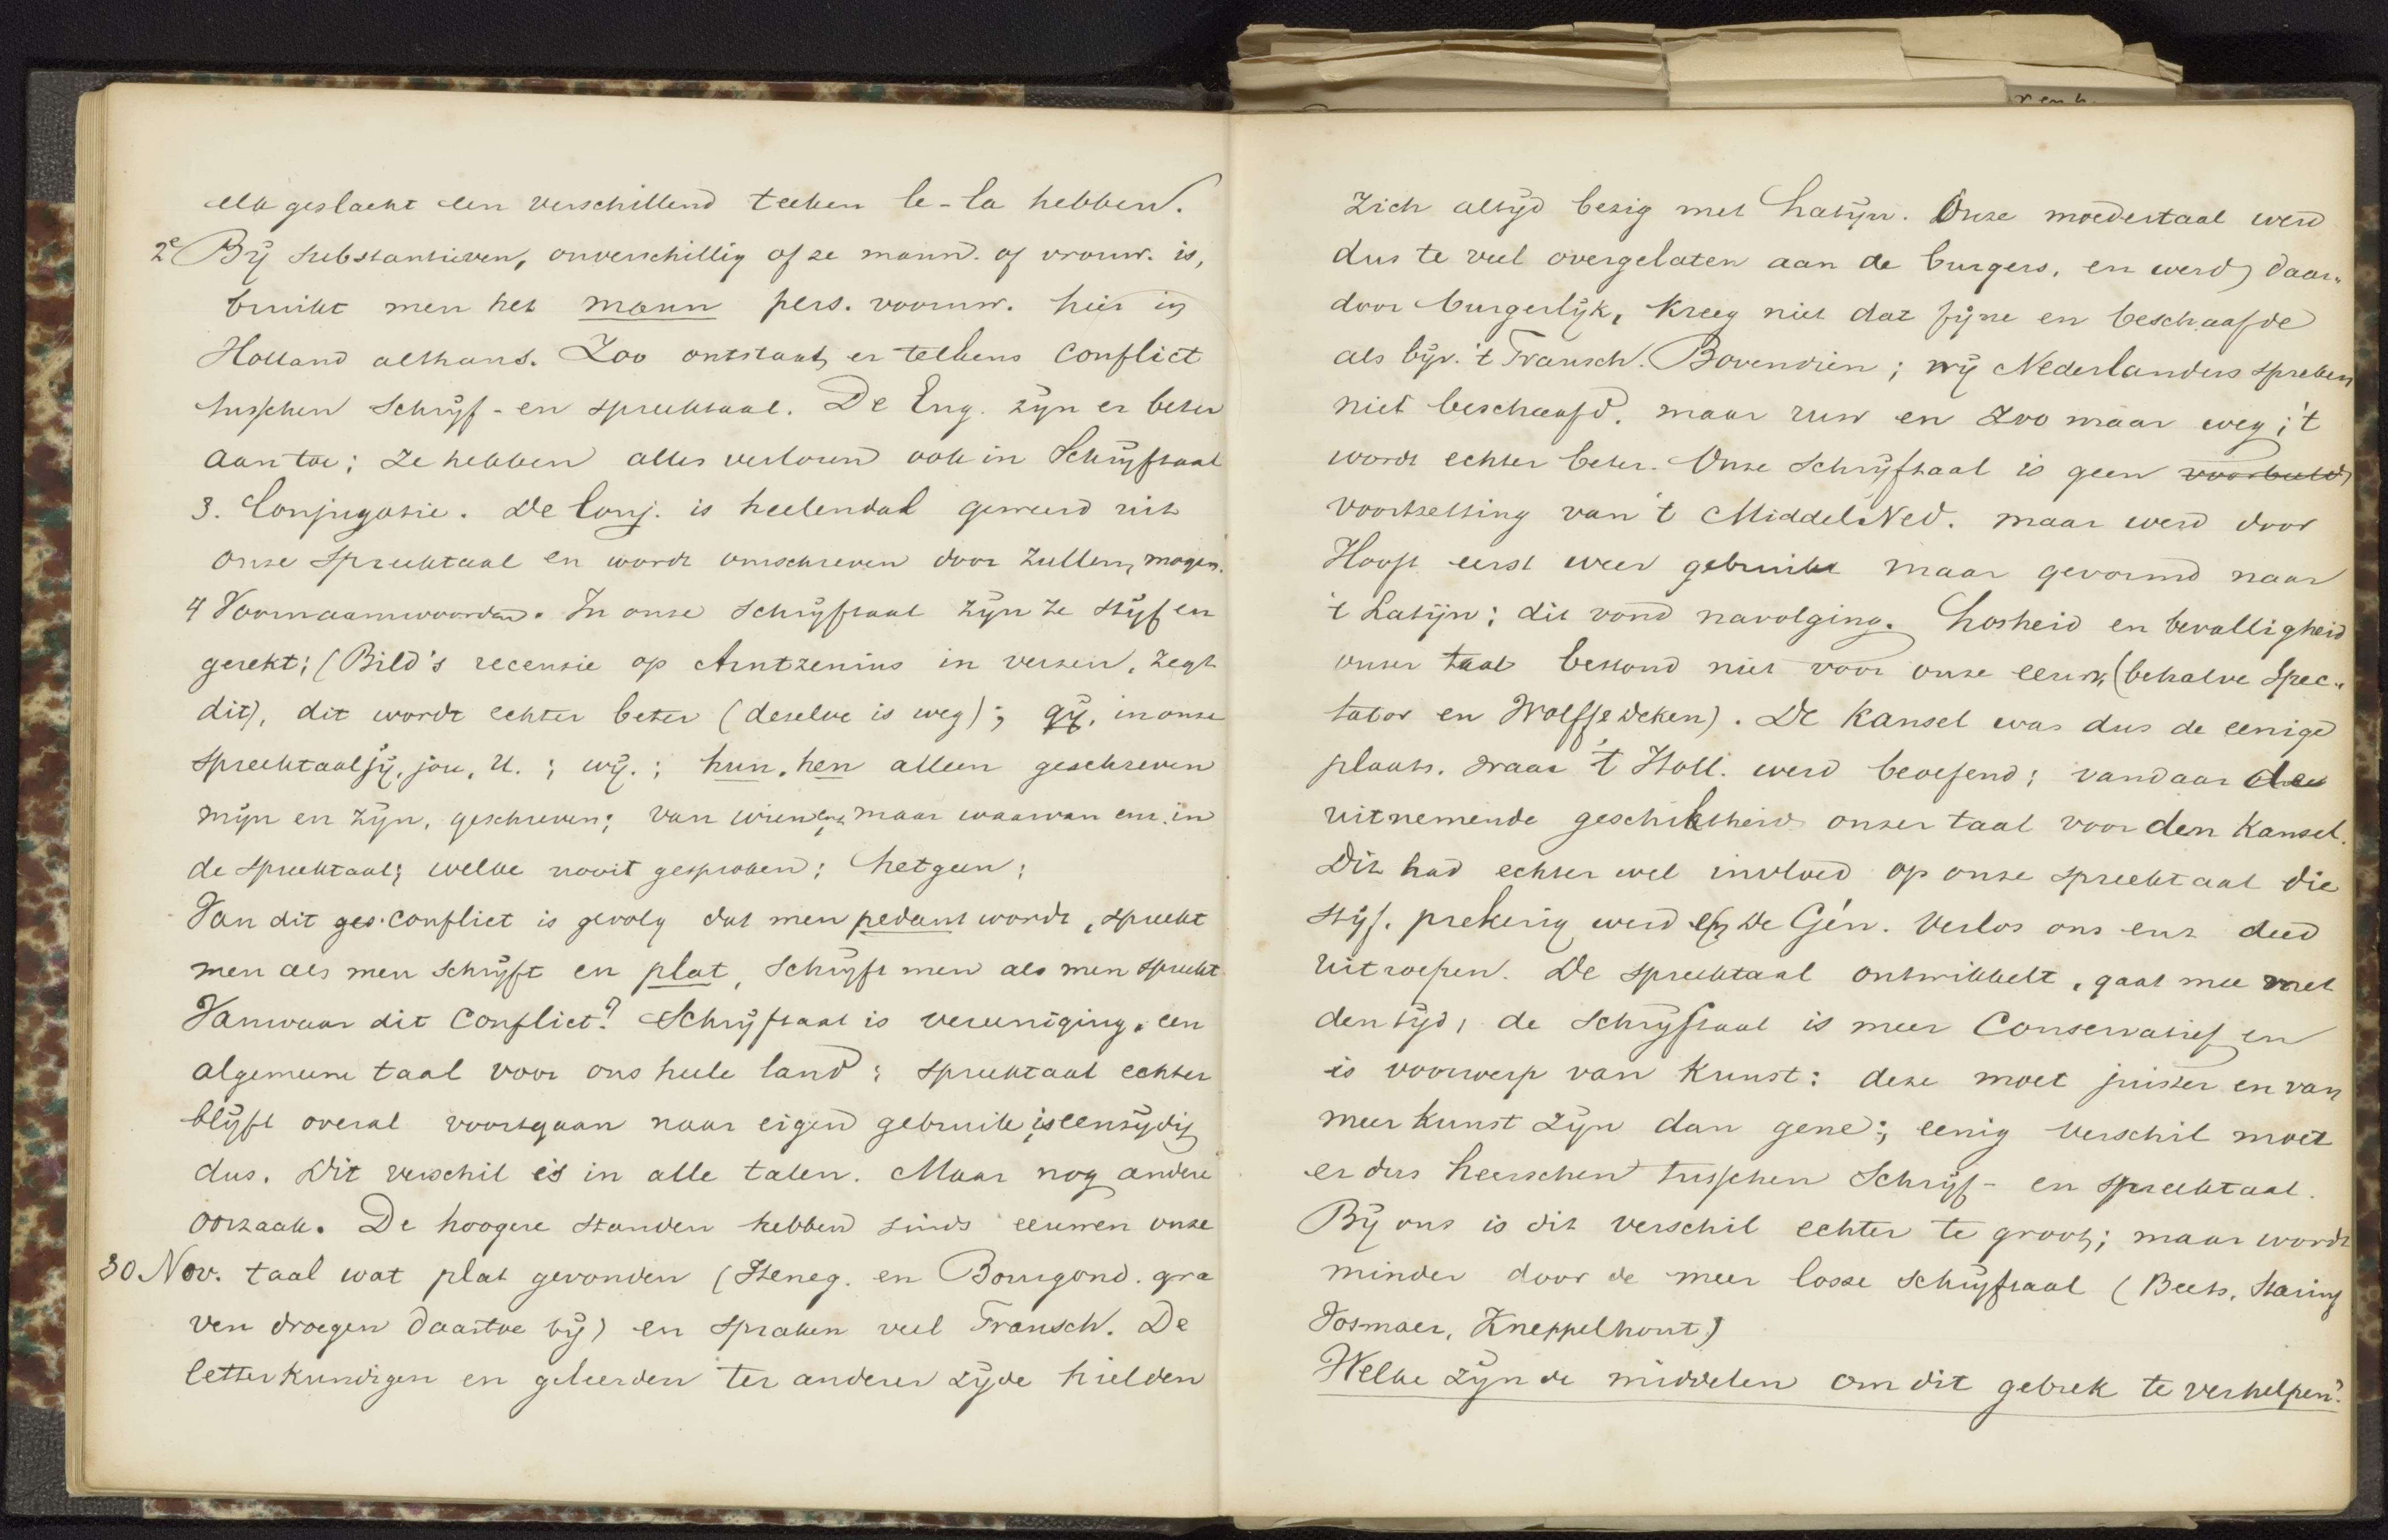 elk geslacht een verschillend teeken le-la hebben.
2e By substantieven, onverschillig of ze mann. of vrouw. is,
bruikt men het mann pers. voornw. hier in
Holland althans. Zoo ontstaat er telkens conflict
tusschen schryf- en spreektaal. De Eng. zyn er beter
aan toe; ze hebben alles verloren ook in Schryftaal
3. Conjugatie. De Conj. is heelendal geweerd uit
onze spreektaal en wordt omschreven door zullen, mogen.
4 Voornaamwoorden. In onze schryftaal zyn ze styf en
gerekt; (Bild's recensie op Arntzenius in verzen, zegt
dit), dit wordt echter beter (dezelve is weg); gy, in onze
spreektaal jy, jou, U.; wy.; hun, hen alleen geschreven
myn en zyn, geschreven; van wien enz maar waarvan enz. in
de spreektaal; welke nooit gesproken; hetgeen;
Van dit ges. conflict is gevolg dat men pedant wordt, spreekt
men als men schryft en plat, schryft men als men spreekt
Vanwaar dit conflict? Schryftaal is vereeniging, een
algemeene taal voor ons heele land; spreektaal echter
blyft overal voortgaan naar eigen gebruik is eenzydig
dus. Dit verschil is in alle talen. Maar nog andere
oorzaak. De hoogere standen hebben sinds eeuwen onze
30 Nov. taal wat plat gevonden (Heneg. en Bourgond. gra
ven droegen daartoe by) en spraken veel Fransch. De
letterkundigen en geleerden ter anderer zyde hielden
zich altyd bezig met Latyn. Onze moedertaal werd
dus te veel overgelaten aan de burgers, en werd daar„
door burgerlyk, kreeg niet dat fyne en beschaafde
als byv. 't Fransch. Bovendien; wy Nederlanders spreken
niet beschaafd, maar ruw en zoo maar weg; 't
wordt echter beter. Onze schryftaal is geen voorbeeld
voortzetting van 't MiddelNed. maar werd door
Hooft eerst weer gebruikt maar gevormd naar
't Latyn; dit vond navolging. Losheid en bevalligheid
onzer taal bestond niet voor onze eeuw, (behalve Spec„
tator en Wolff e Deken). De kansel was dus de eenige
plaats, waar 't Holl. werd beoefend; vandaar de
uitnemende geschiktheid onzer taal voor den kansel.
Dit had echter wel invloed op onze spreektaal die
styf, prekerig werd en De Gén. Verlos ons enz deed
uitroepen. De spreektaal ontwikkelt, gaat mee met
den tyd, de schryftaal is meer Conservatief en
is voorwerp van kunst: deze moet juister en van
meer kunst zyn dan gene; eenig verschil moet
er dus heerschen tusschen Schryf- en spreektaal.
By ons is dit verschil echter te groot; maar wordt
minder door de meer losse schryftaal (Beets, Staring
Vosmaer, Kneppelhout)
Welke zyn de middelen om dit gebrek te verhelpen?